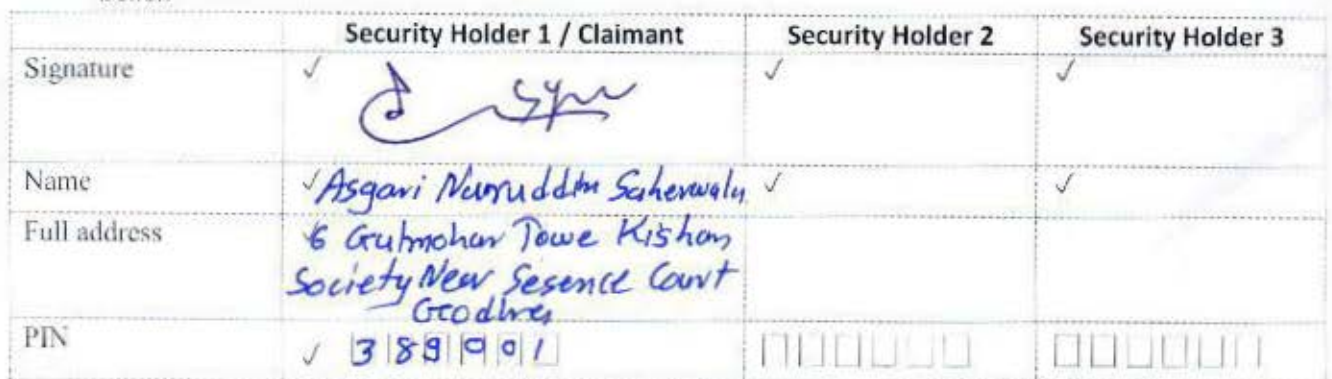 Security Holder 1 / Claimant Security Holder 2 Security Holder 3
Signature
Name Asgari Nuruddin Saherwala
Full address 6 Gulmohar Towe Kishan
Society New Sesence Court
Godhra
PIN 389001